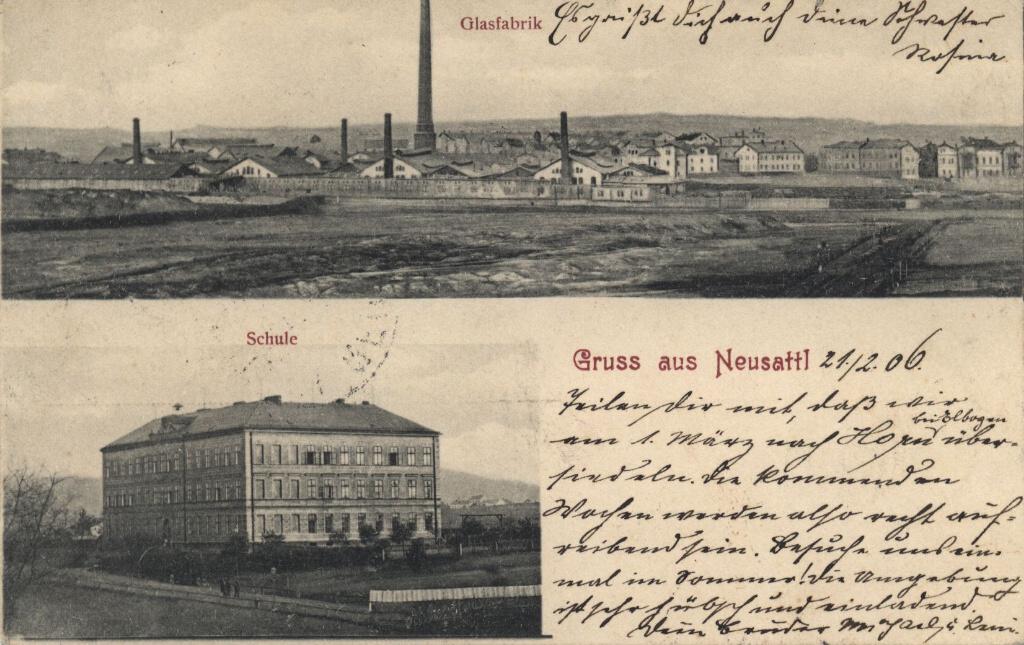 Glasfabrik
Es grüßt Dich auch deine Schwester
Rosina.
Schule
Gruss aus Neusattl 21./2. 06.
Teilen Dir mit, daß wir
bei Elbogen
am 1. März nach Horn über-
siedeln. Die kommenden
Wochen werden also recht auf-
reibend sein. Besuche uns ein-
mal im Sommer! Die Umgebung
ist sehr hübsch und einladend.
Dein Bruder Michael u. Leni.